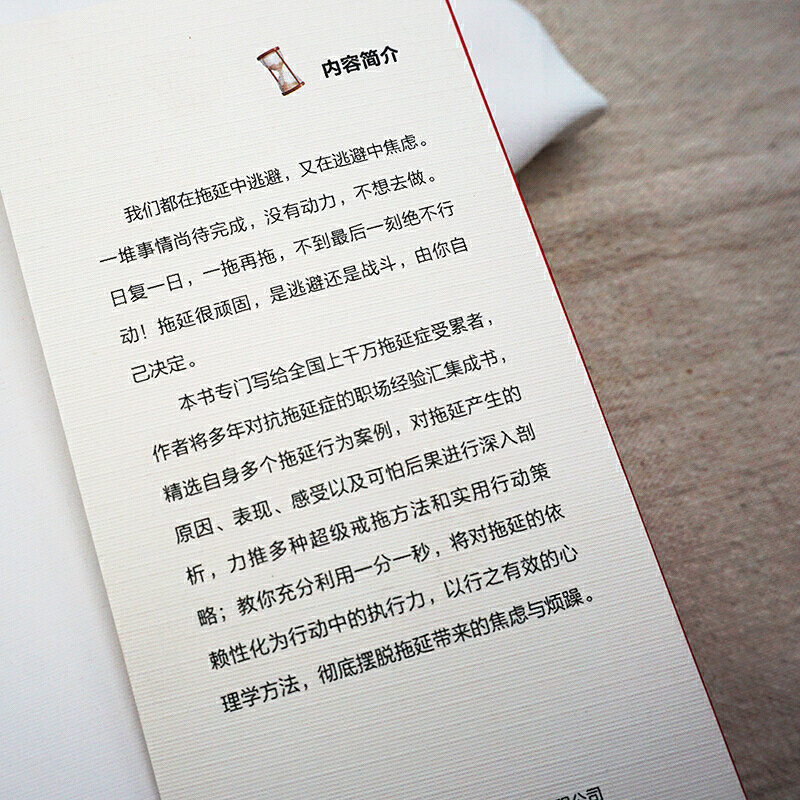 内容简介
我们都在拖延中逃避，又在逃避中焦虑。
一堆事情尚待完成，没有动力，不想去做。
日复一日，一拖再拖，不到最后一刻绝不行
动！拖延很顽固，是逃避还是战斗，由你自
己决定。
本书专门写给全国上千万拖延症受累者，
作者将多年对抗拖延症的职场经验汇集成书，
精选自身多个拖延行为案例，对拖延产生的
原因、表现、感受以及可怕后果进行深入剖
析，力推多种超级戒拖方法和实用行动策
略；教你充分利用一分一秒，将对拖延的依
赖性化为行动中的执行力，以行之有效的心
理学方法，彻底摆脱拖延带来的焦虑与烦躁。
公司